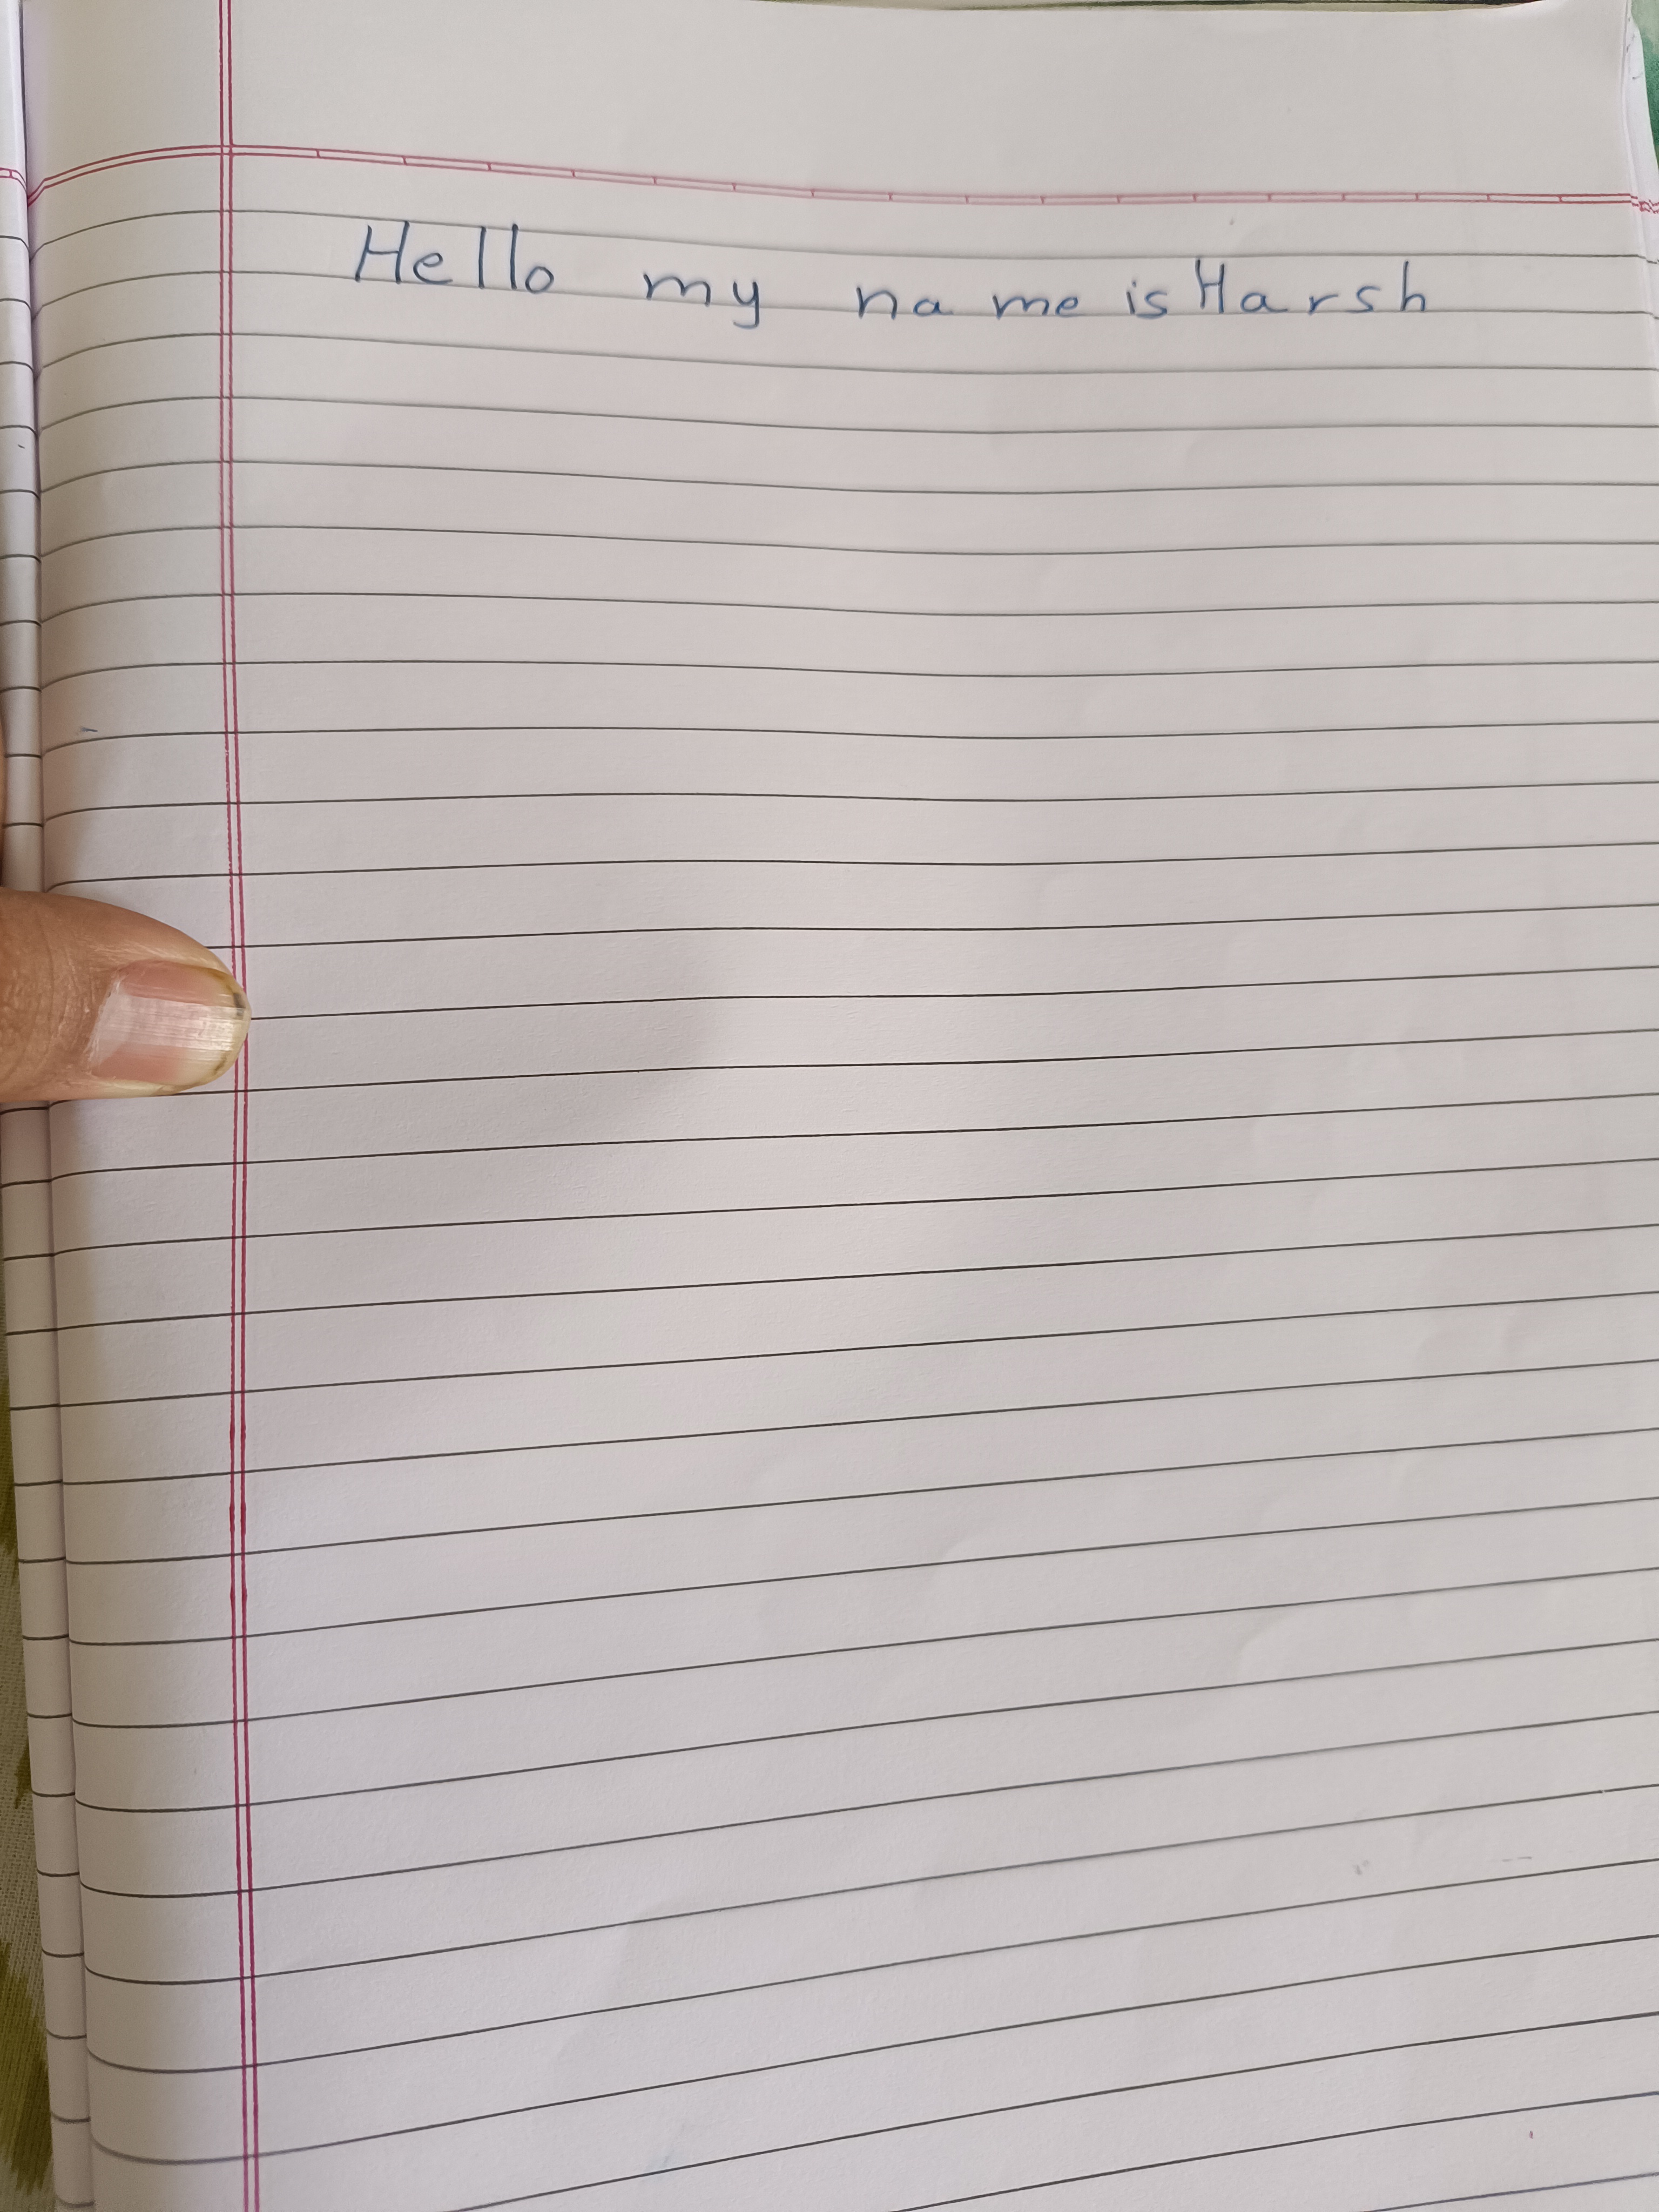 Hello my name is Harsh